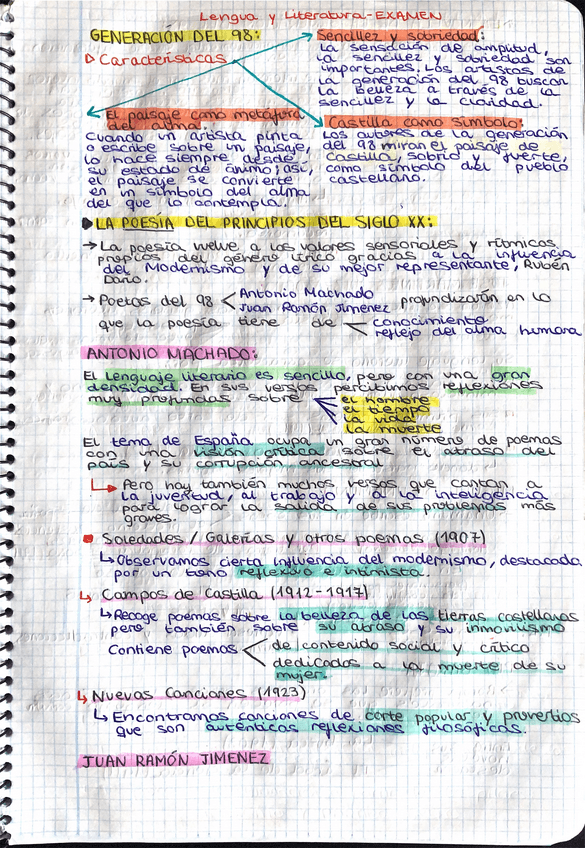 Lengua y Literatura-EXAMEN
GENERACIÓN DEL 98:
▷ Características
Sencillez y sobriedad:
La sensación de amplitud,
la sencillez y sobriedad son
importantes. Los artistas de
la generación del 98 buscan
la belleza a través de la
sencillez y la claridad.
El paisaje como metáfora
del alma.
Cuando un artista pinta
o escribe sobre un paisaje,
lo hace siempre desde
su estado de ánimo; así,
el paisaje se convierte
en un símbolo del alma
del que lo contempla.
Castilla como símbolo:
Los autores de la generación
del 98 miran el paisaje de
Castilla, sobrio y fuerte,
como símbolo del pueblo
castellano.
▶ LA POESÍA DEL PRINCIPIOS DEL SIGLO XX:
→ La poesía vuelve a los valores sensoriales y rítmicos
propios del género lírico gracias a la influencia
del Modernismo y de su mejor representante, Rubén
Darío.
→ Poetas del 98 < Antonio Machado
Juan Ramón Jimenez profundizarán en lo
que la poesía tiene de < conocimiento
reflejo del alma humana
ANTONIO MACHADO:
El lenguaje literario es sencillo, pero con una gran
densidad. En sus versos percibimos reflexiones
muy profundas sobre
el hombre
el tiempo
la vida
la muerte
El tema de España ocupa un gran número de poemas
con una visión crítica sobre el atraso del
país y su corrupción ancestral
↳ Pero hay también muchos versos que cantan a
la juventud, al trabajo y a la inteligencia
para lograr la salida de sus problemas más
graves.
Soledades / Galerías y otros poemas (1907)
↳ Observamos cierta influencia del modernismo, destacada
por un tono reflexivo e intimista.
↳ Campos de Castilla (1912-1917)
↳ Recoge poemas sobre la belleza de las tierras castellanas
pero también sobre su atraso y su inmovilismo
Contiene poemas < de contenido social y crítico
dedicados a la muerte de su
mujer.
↳ Nuevas Canciones (1923)
↳ Encontramos canciones de corte popular y proverbios
que son auténticas reflexiones filosóficas.
JUAN RAMÓN JIMENEZ